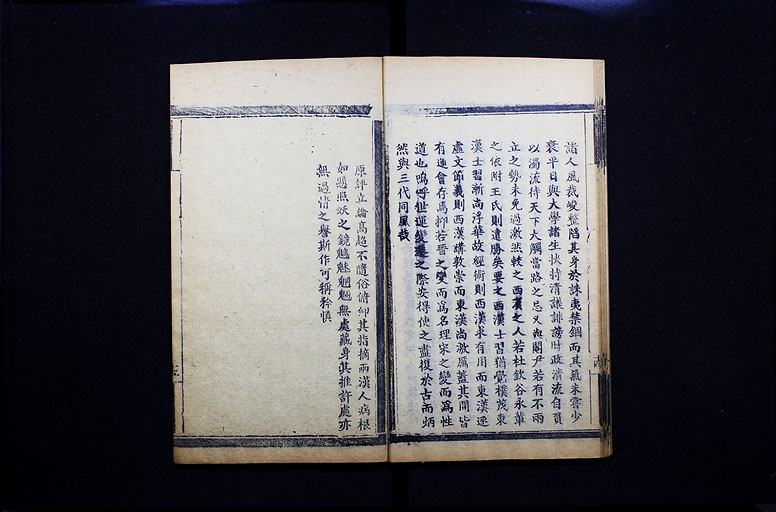 諸人風裁峻整陷其身於誅夷禁錮而其氣未嘗少
衰平日與大學諸生扶持清議誹謗時政清流自負
以濁流待天下大觸當路之忌又與閹尹若有不兩
立之勢未免過激然較之西漢之人若杜欽谷永輩
之依附王氏則遠勝矣要之西漢士習猶覺樸茂東
漢士習漸尚浮華故經術則西漢求有用而東漢逐
虛文節義則西漢講教崇而東漢尚激厲蓋其間皆
有運會存焉抑若晉之變而爲名理宋之變而爲性
道也嗚呼世運變遷之際安得使之盡復於古而炳
然與三代同風哉
原評立論高超不隨俗俯仰其指摘兩漢人病根
如懸照妖之鏡魑魅魍魎無處藏身其推許處亦
無過情之譽斯作可稱矜慎